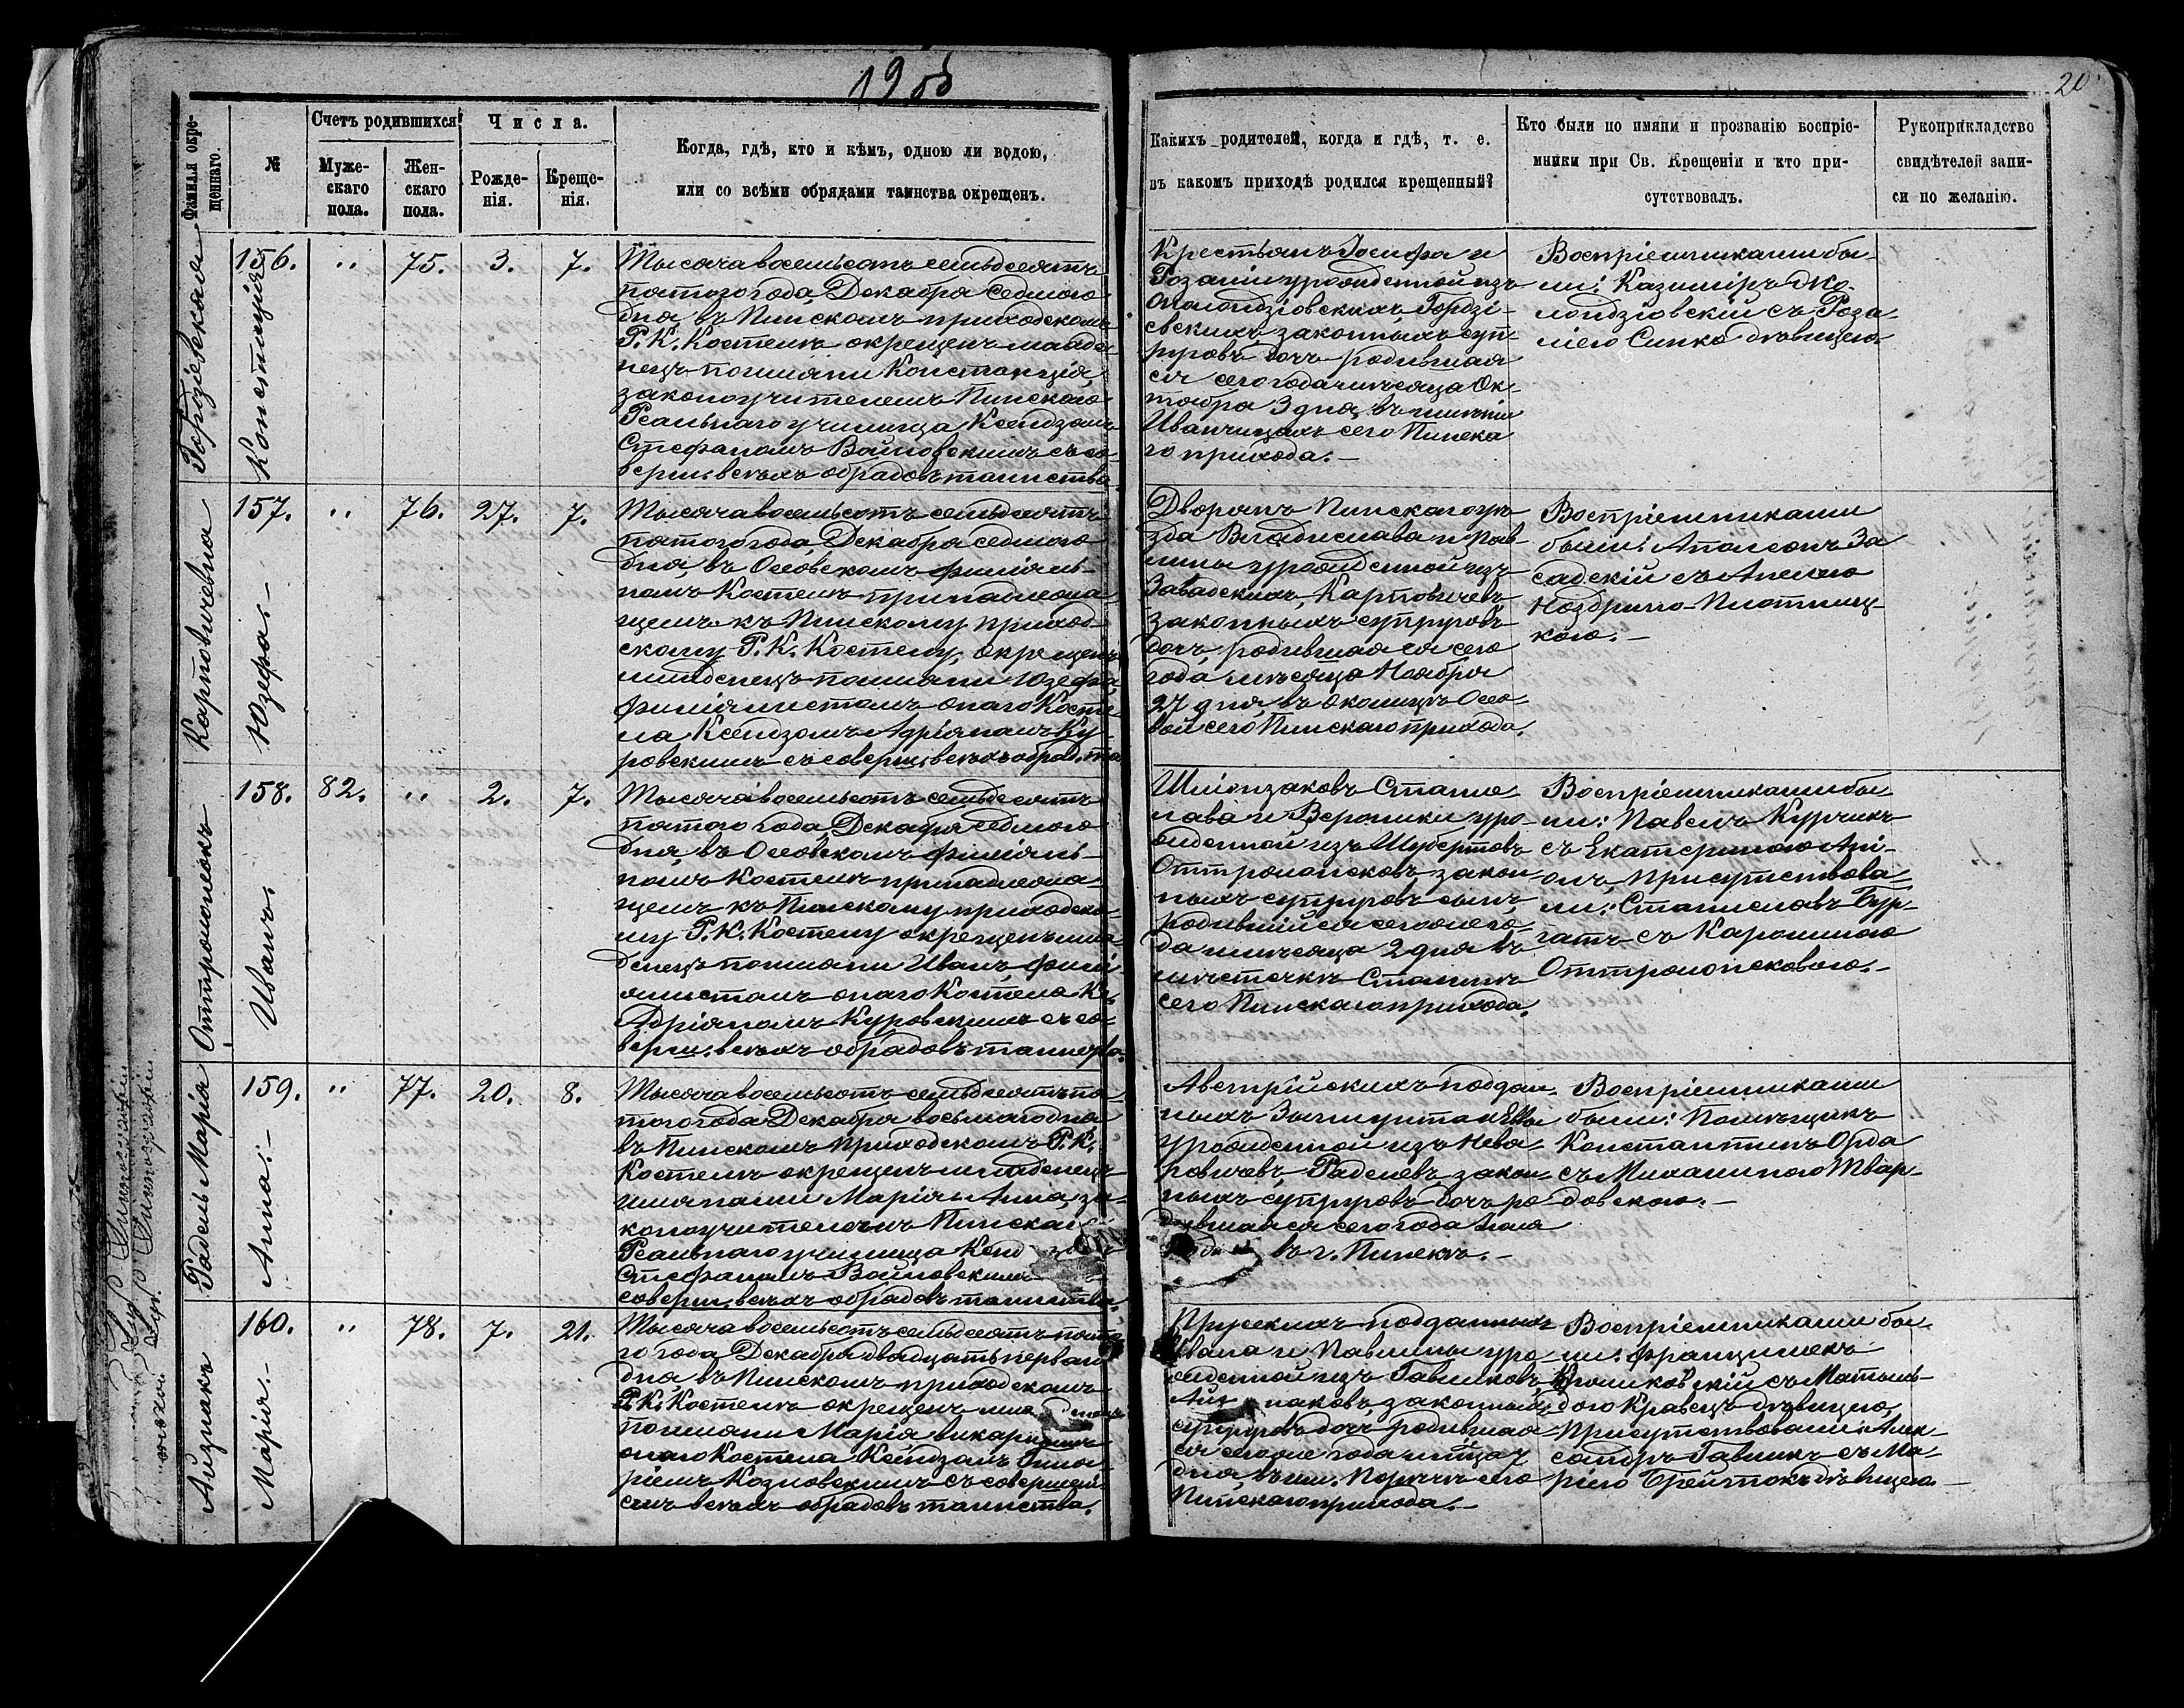 1955
20
Фамилія окре-
щеннаго.
№
Счетъ родившихся
Муже-
скаго
пола.
Жен-
скаго
пола.
Числа.
Рожде-
нія.
Креще-
нія.
Когда, гдѣ, кто и кѣмъ, одною ли водою,
или со всѣми обрядами таинства окрещенъ.
Какихъ родителей, когда и гдѣ, т. е.
въ какомъ приходѣ родился крещенный?
Кто были по имяни и прозванію воспріе-
мники при Св. Крещеніи и кто при-
сутствовалъ.
Рукоприкладство
свидѣтелей запи-
си по желанію.
Констанція
156. " 75. 3. 7.
Тысяча восемьсотъ семьдесятъ
пятаго года, Декабря седьмаго
дня, въ Пинскомъ приходскомъ
Р. К. Костелѣ окрещенъ младе
нецъ по имяни Констанція,
законоучителемъ Пинскаго
Реальнаго училища Ксендзомъ
Стефаномъ Войновскимъ съ со-
верш. всѣхъ обрядовъ таинства
Крестьянъ Іосифа и
Розаліи урожденной изъ
законныхъ суп-
руговъ дочь родившая
ся сего года мѣсяца Ок-
тября 3 дня, въ имѣніи
Иванчицахъ сего Пинска
го прихода.—
Воспріемниками бы
ли: Казиміръ Жо-
лондзіовскій съ Роза
ліею Синко дѣвицею
Карповичевна
Юзефа.—
157. " 76. 27. 7.
Тысяча восемьсотъ семьдесятъ
пятаго года, Декабря седьмаго
дня, въ Осовскомъ филіаль-
номъ Костелѣ принадлежа
щемъ къ Пинскому приход-
скому Р. К. Костелу, окрещенъ
младенецъ по имяни Юзефа,
филіалистомъ онаго Косте
ла Ксендзомъ Адріаномъ Ку-
ровскимъ съ соверш. всѣхъ обряд. та
Дворянъ Пинскаго уѣ
зда Владислава и Пав
лины урожденной изъ
Завадскихъ, Карповичевъ
законныхъ супруговъ
дочь, родившаяся сего
года, мѣсяца Ноября
27 дня, въ околицѣ Осо-
вой сего Пинскаго прихода.
Воспріемниками
были: За
садскій съ Анелею
кою.—
Иванъ.
158. 82. " 2. 7.
Тысяча восемьсотъ семьдесятъ
пятаго года, Декабря седьмаго
дня, въ Осовскомъ филіаль-
номъ Костелѣ принадлежа-
щемъ къ Пинскому приходско-
му Р. К. Костелу окрещенъ мла
денецъ по имяни Иванъ, филі-
алистомъ онаго Костела Кс.
Адріаномъ Куровскимъ съ со-
верш. всѣхъ обрядовъ таинства.
Стани
лава и Вероники уро-
жденной изъ Шубертовъ
закон-
ныхъ супруговъ сынъ,
родившійся сего же го-
да мѣсяца 2 дня въ
мѣстечкѣ Столинѣ
сего Пинскаго прихода.
Воспріемниками бы
ли: Павелъ Курчикъ
съ Екатериною
Присутствова-
ли: Станиславъ Бур-
гатъ съ Каролиною
Радель Марія
Анна.—
159. " 77. 20. 8.
Тысяча восемьсотъ семьдесятъ пя-
таго года Декабря восьмаго дня
въ Пинскомъ приходскомъ Р. К.
Костелѣ окрещенъ младенецъ
имянами Марія и Анна, за-
коноучителемъ Пинскаго
Реальнаго училища
Стефаномъ Войновскимъ
соверш. всѣхъ обрядовъ таинства.
Австрійскихъ поддан-
ныхъ
урожденной изъ Нева-
ровичевъ, Раделевъ закон
ныхъ супруговъ дочь ро
дившаяся сего года Іюля
въ г. Пинскѣ.—
Воспріемниками
были: Помѣщикъ
Константинъ Орда
съ Михалиною Твар-
довскою.—
Айзнакъ
Марія.—
160. " 78. 7. 21.
Тысяча восемьсотъ семьдесятъ пята
го года Декабря двадцать перваго
дня, въ Пинскомъ приходскомъ
Р. К. Костелѣ окрещенъ мла денецъ
по имяни Марія викаріемъ
онаго Костела Ксендзомъ
Козловскимъ съ совершені-
емъ всѣхъ обрядовъ таинства.
Прусскихъ подданныхъ
Ивана и Павлины уро-
жденной изъ Гавликовъ,
законныхъ
супруговъ дочь родившая
ся сего же года м-ца 7
дня, въ им. Порѣчьѣ сего
Пинскаго прихода.—
Воспріемниками бы-
ли: Францишекъ
съ Матиль-
дою Кравецъ дѣвицею,
Присутствовали: Алек-
сандръ Гавликъ съ Ма-
ріею дѣвицею.—